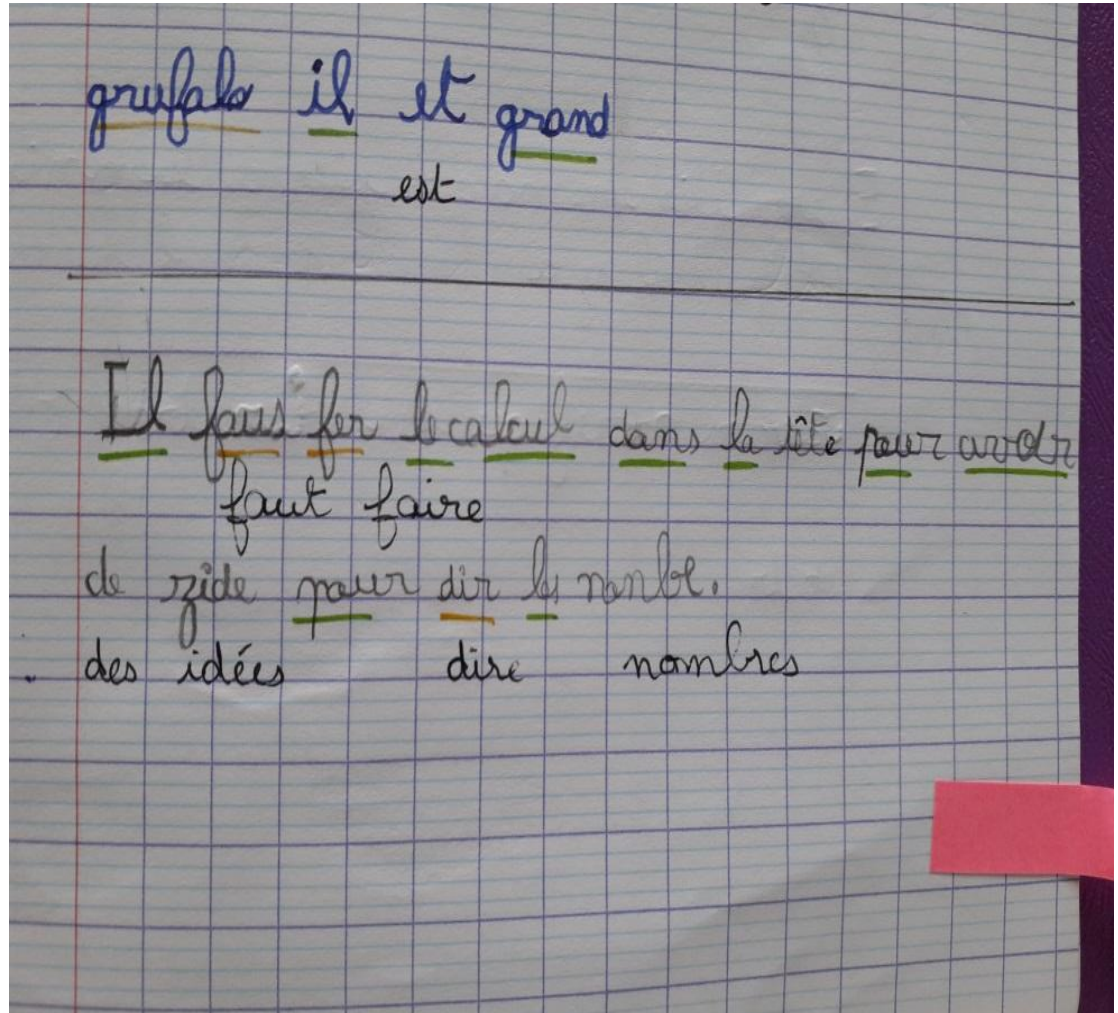 grufalo il et grand
est
Il faus fer le calcul dans la tête pour avoir
faut faire
de zide pour dir les nonbe.
des idées dire nombres